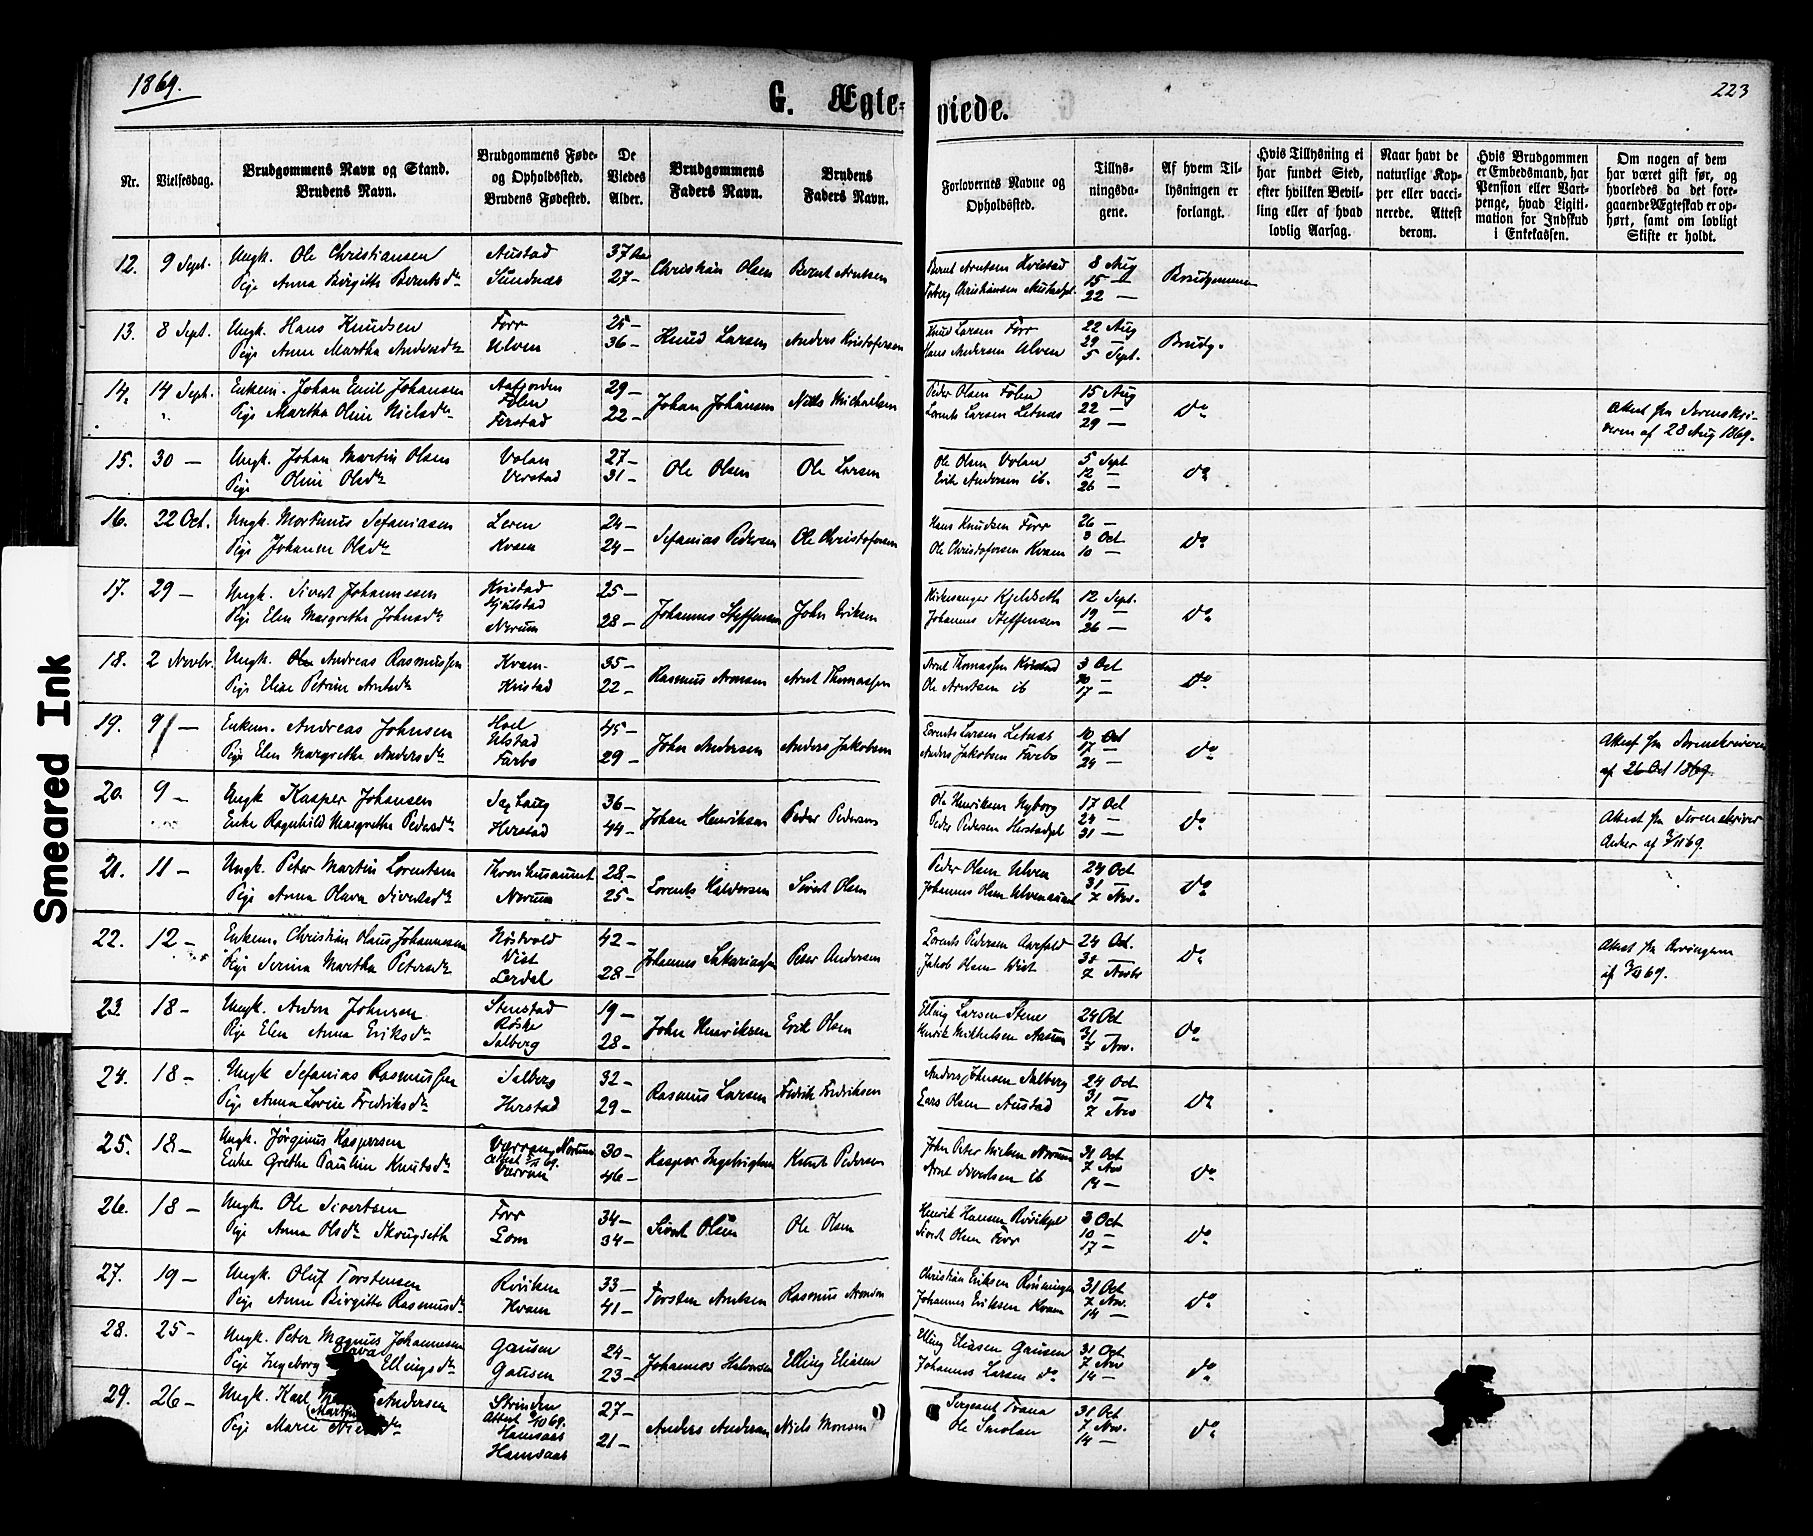 1869.
G. Ægte-
viede.
223
Smeared Ink
Nr.
Vielsesdag.
Brudgommens Navn og Stand.
Brudens Navn.
Brudgommens Føde-
og Opholdssted.
Brudens Fødested.
De
Viedes
Alder.
Brudgommens
Faders Navn.
Brudens
Faders Navn.
Forlovernes Navne og
Opholdssted.
Tillys-
ningsda-
gene.
Af hvem Til-
lysningen er
forlangt.
Hvis Tillysning ei
har fundet Sted,
efter hvilken Bevil-
ling eller af hvad
lovlig Aarsag.
Naar havt de
naturlige Kop-
per eller vacci-
nerede. Attest
derom.
Hvis Brudgommen
er Embedsmand, har
Pension eller Vart-
penge, hvad Ligiti-
mation for Indskud
i Enkekassen.
Om nogen af dem
har været gift før, og
hvorledes da det fore-
gaaende Ægteskab er op-
hørt, samt om lovligt
Skifte er holdt.
12. 9 Sept. Ungk. Ole Christiansen Austad 37 Christian Olsen Bernt Arntsen Bernt Arntsen Kvistad 8 Aug Brudgommen
Pige Anna Birgitte Berntsdr Sundnæs 27 - Christiansen 15 -
22 -
13. 8 Sept. Ungk. Hans Knudsen Forr 25 - Knud Larsen Anders Kristofersen Knud Larsen Forr 22 Aug Brudg.
Pige Anne Martha Andersdr Ulven 36 - Hans Andersen Ulven 29 -
5 Sept.
14. 14 Sept. Enkem. Johan Emil Johansen Aafjorden 29 - Johan Johansen Niels Michaelsen Peder Olsen Folen 15 Aug do
Folen
Pige Martha Oline Nielsdr Ferstad 22 - Lorents Larsen Letnæs 22 -
29 -
Attest fra Sorenskri-
veren af 28 Aug 1869.
15. 30 - Ungk. Johan Martin Olsen Volan 27 - Ole Olsen Ole Larsen Ole Olsen Volan 5 Sept do
Pige Oline Olsdr Verstad 31 - Erik Andersen ib. 12 -
26 -
16. 22 Oct. Ungk. Mortinus Sefaniasen Leren 24 - Sefanias Pedersen Ole Christofersen Hans Knudsen Forr 26 - do
Pige Johanna Olsdr Kvam 24 - Ole Christofersen Kvam 3 Oct
10 -
17. 29 - Ungk. Sivert Johannesen Kvistad 25 - Johannes Steffensen John Eriksen Kirkesanger Kjelseth 12 Sept. do
Pige Elen Margrethe Johnsdr Norum 28 - Johannes Steffensen 19 -
26 -
18. 2 Novbr. Ungk. Ole Andreas Rasmussen Kvam 35 - Rasmus Aronsen Arnt Thomassen Arnt Thomassen Kvistad 3 Oct do
Pige Elise Petrine Arntsdr Kvistad 22 - Ole Arntsen ib 10 -
17 -
19. 9 - Enkem. Andreas Johnsen Hoel 45 - John Andersen Anders Jakobsen Lorents Larsen Letnæs 10 Oct do
Ulstad
Pige Elen Margrethe Andersdr Færbo 29 - Anders Jakobsen Færbo 17 -
24 -
Attest fra Sorenskriveren
af 26 Oct 1869.
20. 9 - Ungk Kasper Johansen 36 - Johan Henriksen Peder Pedersen Ole Henriksen Nyborg 17 Oct do
Enke Ragnhild Margrethe Pedersdr Herstad 44 - Peder Pedersen Herstadpl 24 -
31 -
Attest fra Sorenskriver
Anker af 3/11 69.
21. 11 - Ungk. Peter Martin Lorentsen 28 - Lorents Haldorsen Sivert Olsen Peder Olsen Ulven 24 Oct do
Pige Anna Olava Sivertsdr Norum 25 - Johannes Olsen Ulvenaunet 31 -
7 Nov.
22. 12 - Enkem. Christian Olaus Johannesen Nøstvold 42 - Johannes Sakariassen Peter Andersen Lorents Pedersen 24 Oct. do
Vist
Pige Serina Martha Petersdr Lerdal 28 - Jakob Olsen Wist 31 -
7 Novbr
Attest fra
af 69.
23. 18 - Ungk. Anders Johnsen Stenstad 19 - John Henriksen Erik Olsen Elling Larsen Stene 24 Oct do
Røske
Pige Elen Anna Eriksdr Salberg 28 - Henrik Mikkelsen 31 -
7 Nov.
24. 18 - Ungk Sefanias Rasmussen Salberg 32 - Rasmus Larsen Fredrik Fredriksen Anders Johnsen Salberg 24 Oct do
Pige Anna Lovise Fredriksdr Herstad 29 - Lars Olsen Austad 31 -
7 Nov
25. 18 - Ungk. Jørginus Kaspersen Værran, Norum 30 - Kasper Ingebrigtsen Knut Pedersen John Peter Nielsen Norum 31 Oct do
Attest 69.
Enke Grethe Pauline Knutsdr Værran 46 - Arnt Sivertsen ib 7 Nov
14 -
26. 18 - Ungk. Ole Sivertsen Forr 34 - Sivert Olsen Ole Olsen Henrik Hansen 3 Oct do
Pige Anna Olsdr Skrugseth Lom 34 - Sivert Olsen Forr 10 -
17 -
27. 19 - Ungk. Oluf Torstensen Røviken 33 - Torsten Arntsen Rasmus Aronsen Christian Eriksen 31 Oct do
Pige Anne Birgitte Rasmusdr Kvam 41 - Johannes Eriksen Kvam 7 Nov.
14 -
28. 25 - Ungk. Peter Magnus Johannesen Gausen 24 - Johannes Halvorsen Elling Eliasen Elling Eliasen Gausen 31 Oct do
Pige Ingeborg Olava Ellingsdr Gausen 23 - Johannes Larsen do 7 Nov
14 -
29. 26 - Ungk. Karl Martin Andersen Strinden 27 - Anders Andersen Niels Monsen Sergeant Frana 31 Oct do
Attest /10 69.
Hamsaas
Pige Marie Hamsaas 21 - Ole Smolan 7 Nov.
14 -